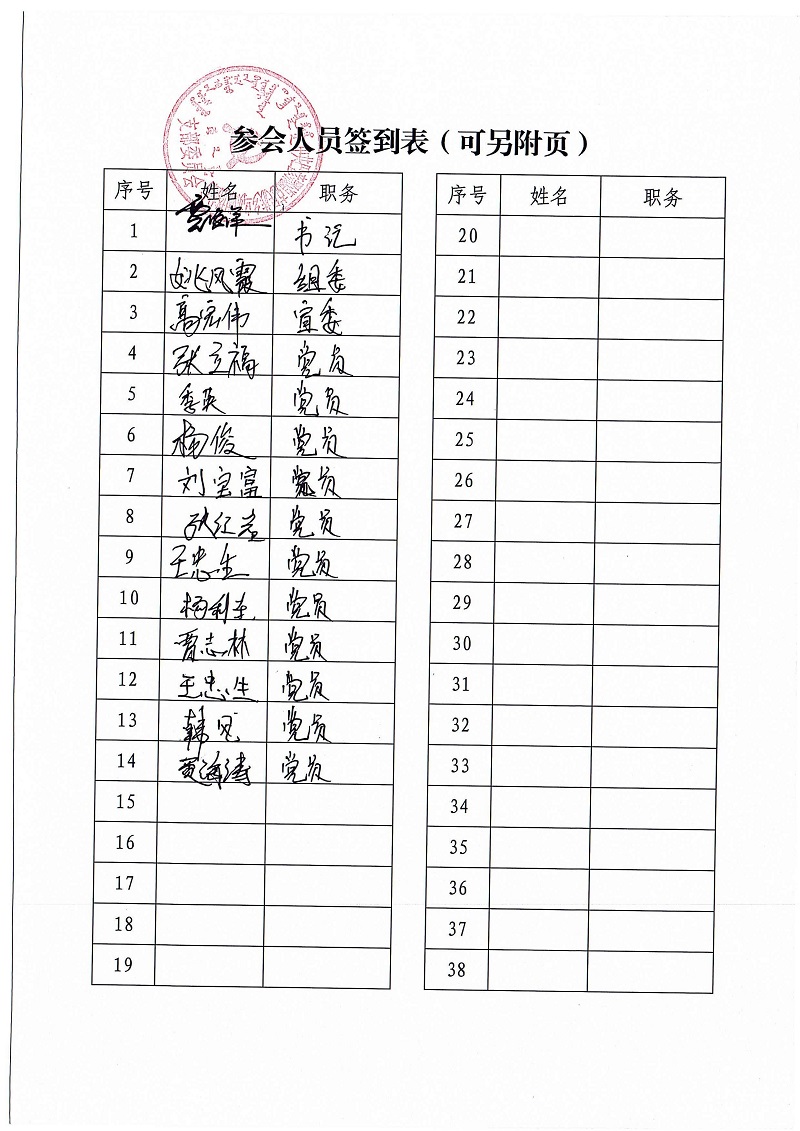 参会人员签到表（可另附页）
支部委员会
序号 姓名 职务
1 书记
2 姚凤霞 组委
3 高宏伟 宣委
4 张立福 党员
5 李英 党员
6 杨俊 党员
7 刘宝富 党员
8 党员
9 王忠生 党员
10 杨利东 党员
11 贾志林 党员
12 王忠生 党员
13 党员
14 贾海涛 党员
15
16
17
18
19
序号 姓名 职务
20
21
22
23
24
25
26
27
28
29
30
31
32
33
34
35
36
37
38